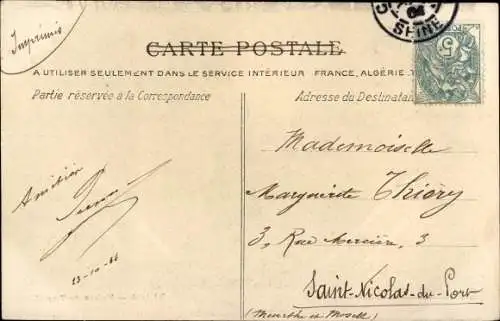 Imprimés
04
SEINE
CARTE POSTALE
A UTILISER SEULEMENT DANS LE SERVICE INTÉRIEUR FRANCE, ALGÉRIE
Partie réservée à la Correspondance
Adresse du Destinatai
5
Mademoiselle
Marguerite Thiéry
3, Rue Mercière, 3
Saint-Nicolas-du-Port
(Meurthe et Moselle)
Amitiés